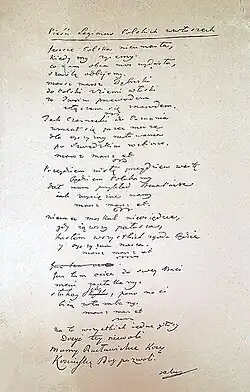 Pieśń Legionów Polskich we Włoszech
Jeszcze Polska nie umarła,
kiedy my żyjemy.
co nam obca moc wydarła,
szablą odbijemy.
marsz marsz Dąbrowski
do Polski z ziemi włoski
za Twoim przewodem
złączem się z narodem.
Jak Czarnecki do Poznania
wracał się przez morze
dla ojczyzny ratowania
po Szwedzkim rozbiorze.
marsz marsz et
Przejdziem Wisłę przejdziem Wartę
będziem Polakami
dał nam przykład Bonaparte
jak zwyciężać mamy
marsz marsz et.
niemiec moskal nie osiędzie,
gdy jąwszy pałasza,
hasłem wszystkich zgoda będzie
y ojczyzna nasza.
marsz marsz et
Już tam ociec do swej Basi
mówi zapłakany:
słuchaj jeno, pono nasi
biją w tarabany.
marsz marsz et
na to wszystkich jedne głosy
Dosyć tej niewoli
Mamy Racławickie Kosy
Kościuszkę Bóg pozwoli